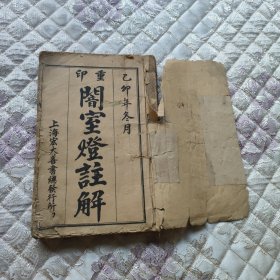 己卯年冬月
重印
闇室燈註解
上海宏大善書總發行所